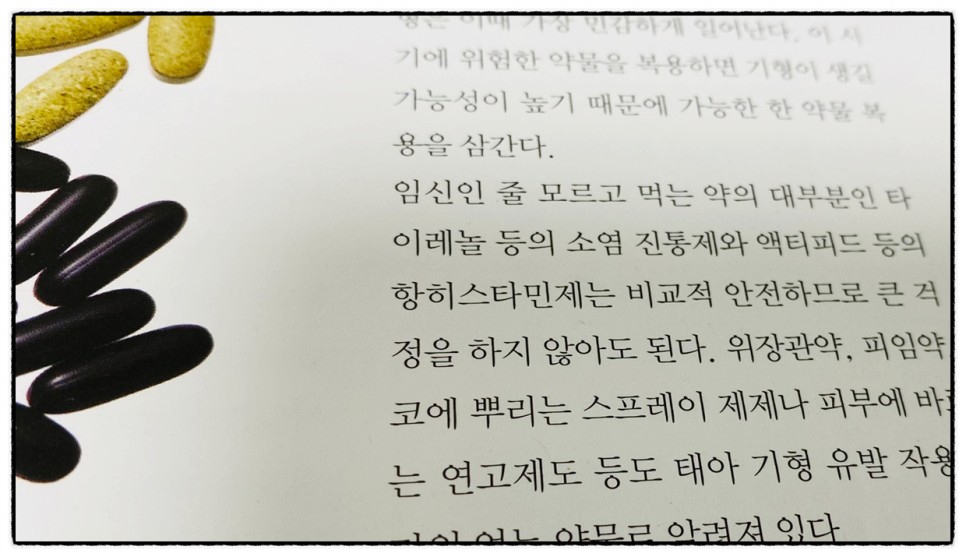 형은 이때 가장 민감하게 일어난다. 이 시
기에 위험한 약물을 복용하면 기형이 생길
가능성이 높기 때문에 가능한 한 약물 복
용을 삼간다.
임신인 줄 모르고 먹는 약의 대부분인 타
이레놀 등의 소염 진통제와 액티피드 등의
항히스타민제는 비교적 안전하므로 큰 걱
정을 하지 않아도 된다. 위장관약, 피임약
코에 뿌리는 스프레이 제제나 피부에 바르
는 연고제도 등도 태아 기형 유발 작용
거의 없는 약물로 알려져 있다